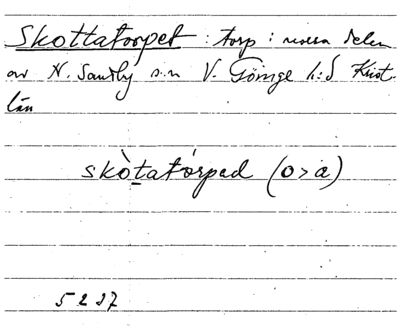 Skottatorpet : torp i norra delen
av N. Sandby sn V. Göinge h:d Krist.
län
skòtatórpad (o>a)
5 2 37